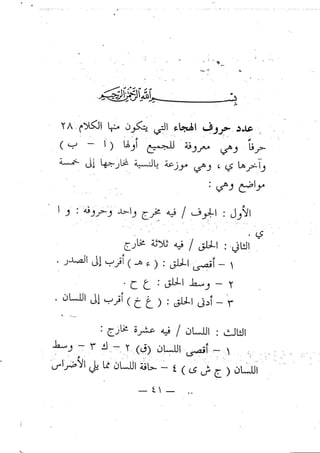 بسم الله الرحمن الرحيم
عدد حروف الهجاء التي يتكون منها الكلام ٢٨
حرفاً وهي معروفة للجميع أولها ( ا - ب )
وآخرها ي ، وهي موزعة بالنسبة لمخارجها إلى خمسة
مواضع وهي :
الأول : الجوف / فيه مخرج واحد وحروفه : و ا
ي .
الثاني : الحلق / فيه ثلاثة مخارج
١ - أقصى الحلق : ( ء هـ ) أقرب إلى الصدر .
٢ - وسط الحلق : ع ح .
٣ - أدنى الحلق : ( غ خ ) أقرب إلى اللسان .
الثالث : اللسان / فيه عشرة مخارج :
١ - أقصى اللسان (ق) ٢ - ك ٣ - وسط
اللسان ( ج ش ى ) ٤ - حافة اللسان مما يلي الأضراس
— ٤١ —